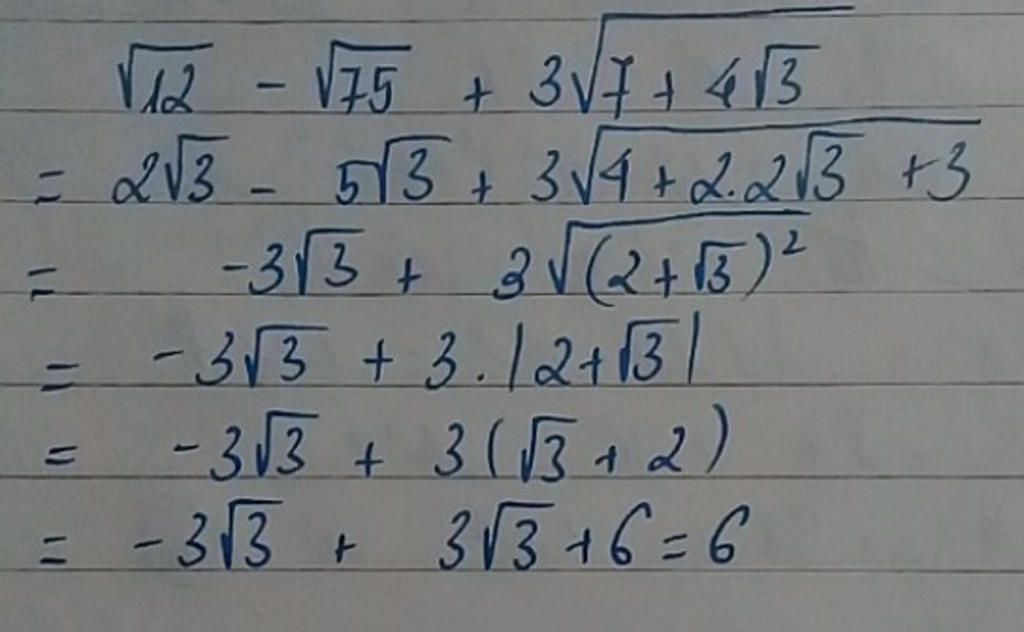 √12 - √75 + 3√(7 + 4√3)
= 2√3 - 5√3 + 3√(4 + 2.2√3 + 3)
= -3√3 + 3√((2 + √3)²)
= -3√3 + 3.|2 + √3|
= -3√3 + 3(√3 + 2)
= -3√3 + 3√3 + 6 = 6